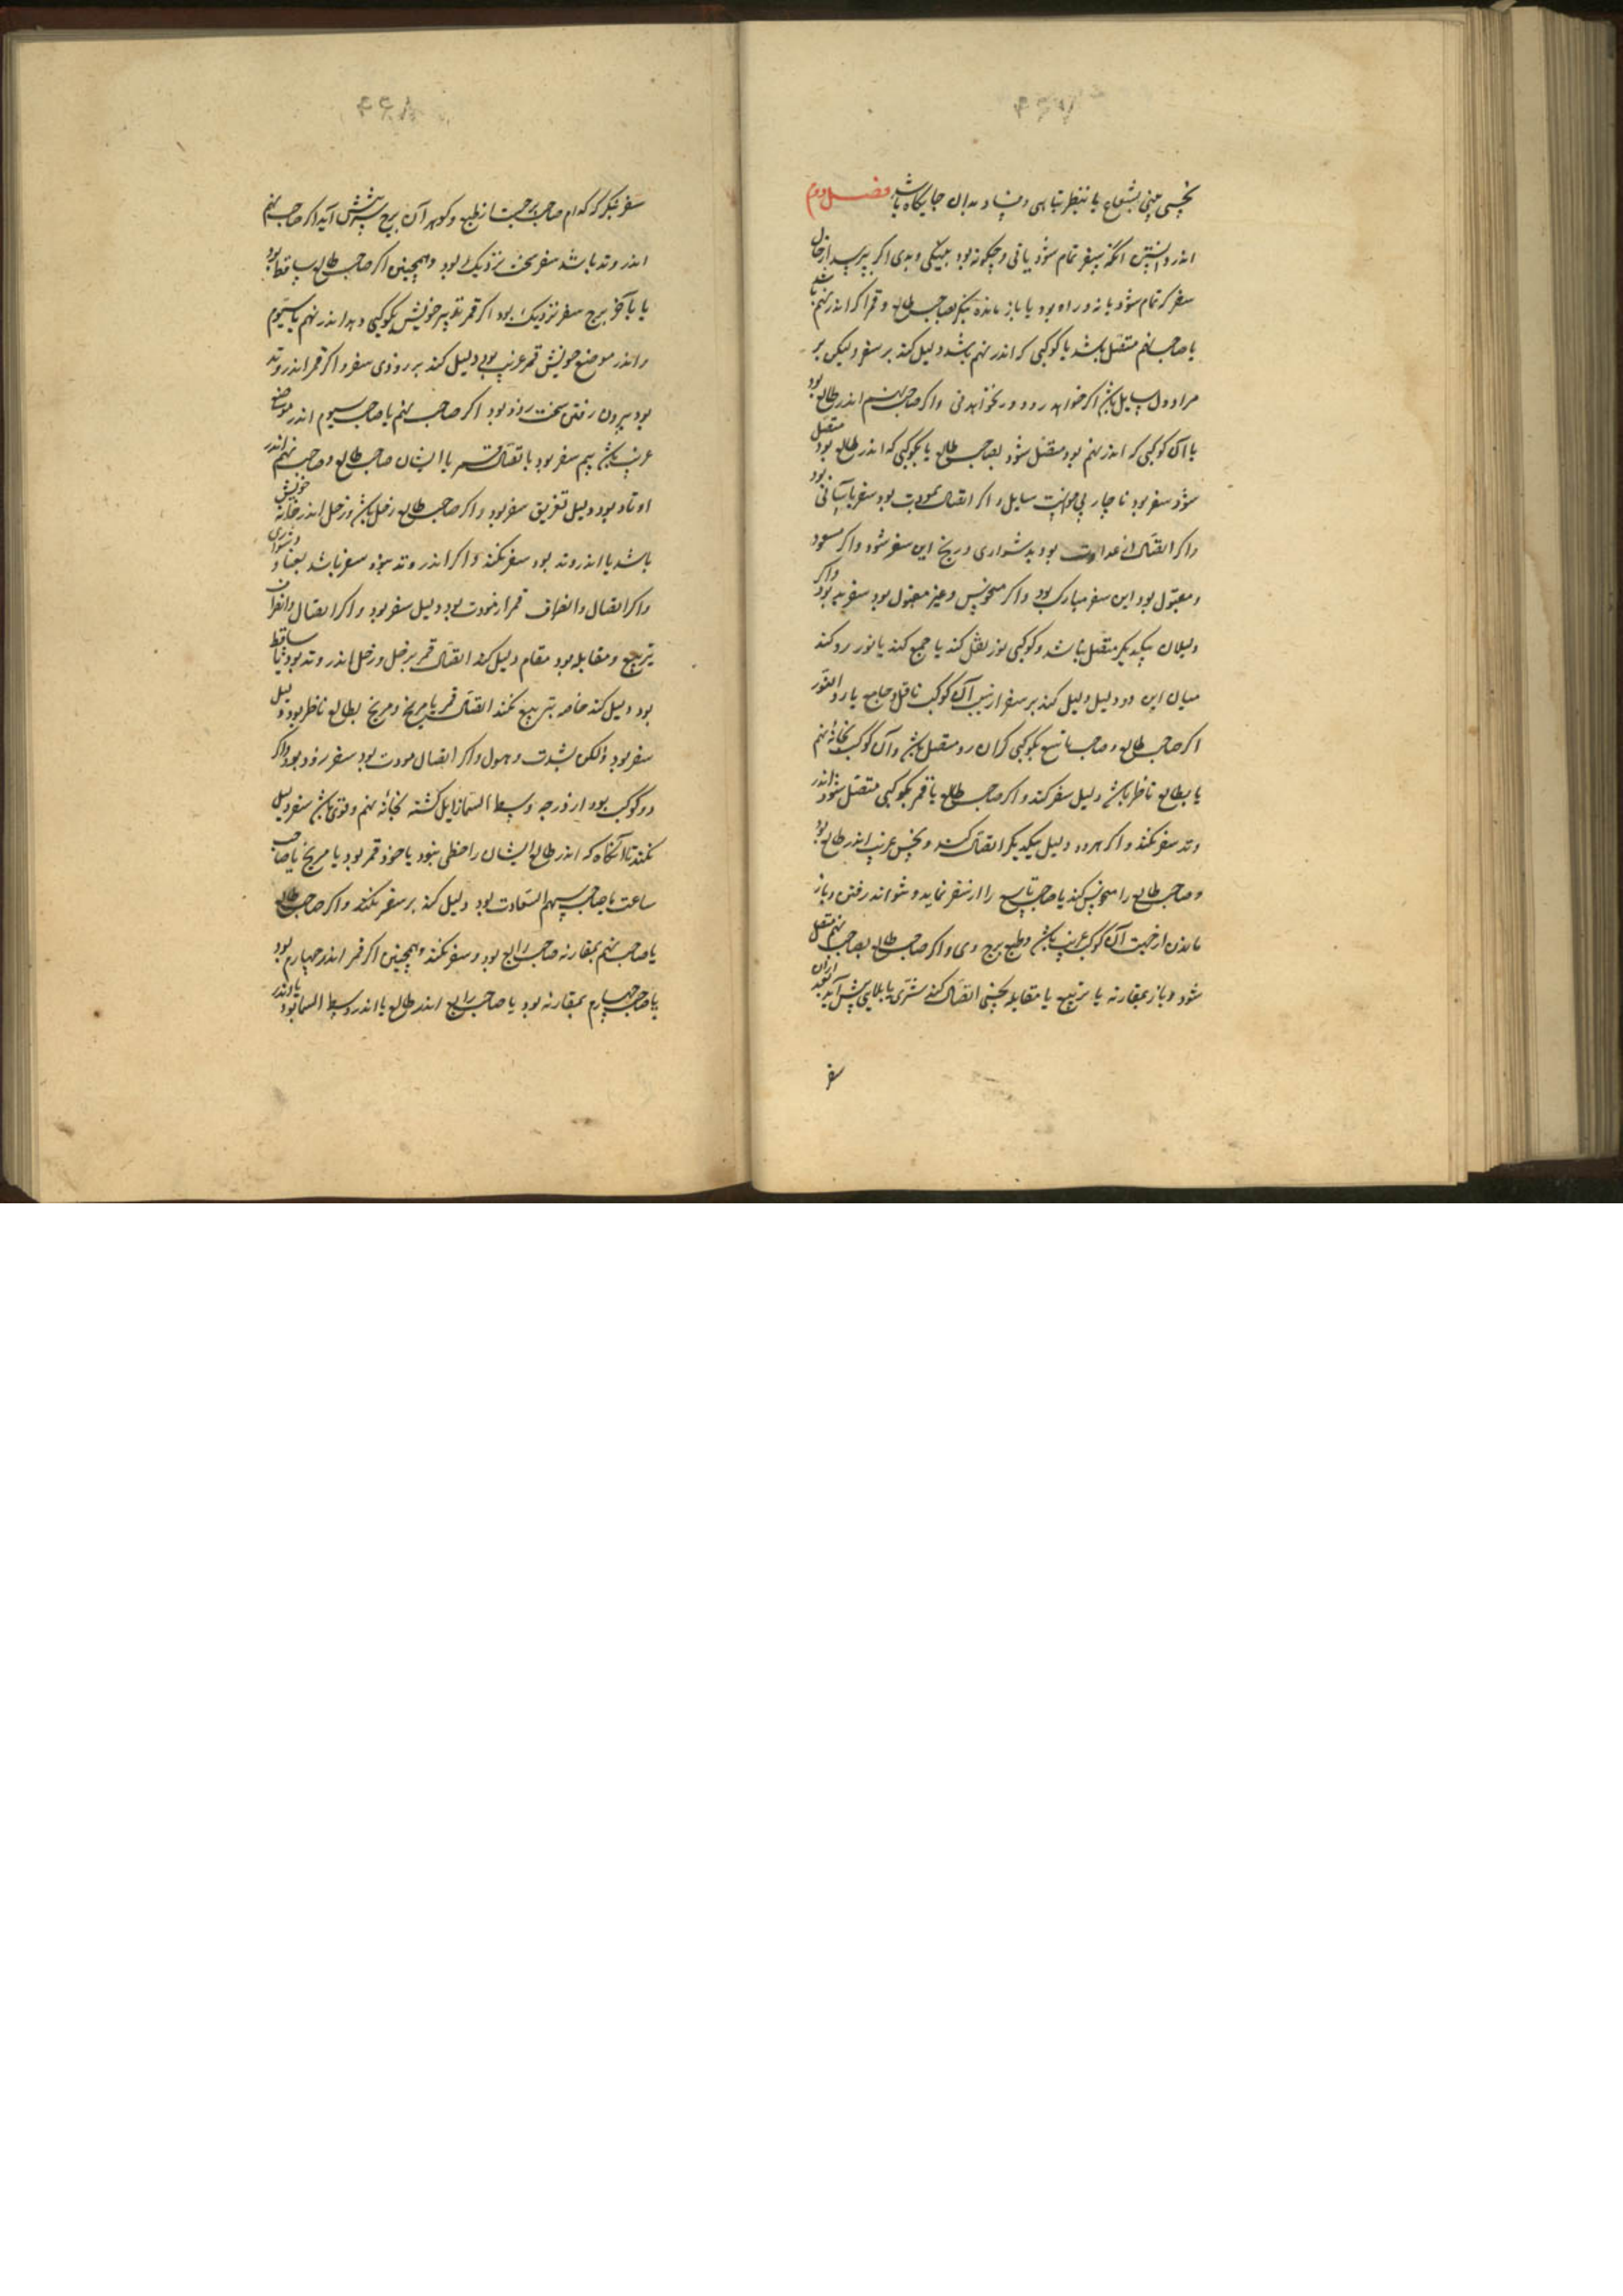 بنحسی یعنی بشعاع یا بنظر تباهی و فساد بدان جایگاه باشد فصل دوم
اندر دانستن آنکه سفر تمام شود یا نی و چگونه بود بنیکی و بدی اگر بپرسد از حال
سفر که تمام شود یا نه و در راه بود یا باز مانده بنگر بصاحب طالع و قمر اگر اندر نهم باشد
یا صاحب نهم متصل باشد یا کوکبی که اندر نهم باشد دلیل کند بر سفر ولیکن بر
مراد دل سایل باشد اگر خواهد رود و ور نخواهد نی و اگر صاحب نهم اندر طالع بود
یا آن کوکبی که اندر نهم بود متصل شود بصاحب طالع یا بکوکبی که اندر طالع بود متصل
شود سفر بود ناچار بی خواست سایل و اگر اتصال بمودت بود سفر بآسانی بود
و اگر اتصال از عداوت بود بدشواری و رنج این سفر شود و اگر مسعود
و مقبول بود این سفر مبارک بود و اگر منحوس و غیر مقبول بود سفر بد بود و اگر
دلیلان بیکدیگر متصل نباشد و کوکبی نور نقل کند یا جمع کند یا نور رد کند
میان این دو دلیل دلیل کند بر سفر از سبب آن کوکب ناقل و جامع یا راد النور
اگر صاحب طالع و صاحب تاسع بکوکبی گران رو متصل باشد و آن کوکب بخانه نهم
یا بطالع ناظر باشد دلیل سفر کند و اگر صاحب طالع یا قمر بکوکبی متصل شود اندر
وتد سفر نکند و اگر هر دو دلیل بیکدیگر اتصال کنند و نحس غریب اندر طالع بود
و صاحب طالع را منحوس کند یا صاحب تاسع را از سفر نماید و نتواند رفتن و باز
ماندن از جهت آن کوکب غریب باشد و طبع برج وی و اگر صاحب طالع بصاحب نهم متصل
شود و باز بمقارنه یا تربیع یا مقابله بنحسی اتصال کند سرّی یا بلایی پیش آید بعد از آن
سفر
سفر بنگر که کدام صاحب برجست از طبع و گوهر آن برج سرّش پیش آید اگر صاحب نهم
اندر وتد باشد سفر سخت نزدیک بود و همچنین اگر صاحب طالع ساقط بود
یا بآخر برج سفر نزدیک بود اگر قمر تدبیر خویش بکوکبی دهد اندر نهم یا سیوم
و اندر موضع خویش قمر غریب بود دلیل کند بر زودی سفر و اگر قمر اندر وتد
بود بیرون رفتن سخت زود بود اگر صاحب نهم یا صاحب سیوم اندر موضع
غریب باشد بیم سفر بود باتصال قمر با ایشان صاحب طالع و صاحب نهم اندر
اوتاد بود دلیل تفریق سفر بود و اگر صاحب طالع زحل باشد و زحل اندر خانه خویش
باشد یا اندر وتد بود سفر نکند و اگر اندر وتد نبود سفر باشد بعنا و دشواری
و اگر اتصال و انصراف قمر از مودت بود دلیل سفر بود و اگر اتصال و انصراف
تربیع و مقابله بود مقام دلیل کند اتصال قمر بزحل و زحل اندر وتد بود یا ساقط
بود دلیل کند خاصه بتربیع نکند اتصال قمر با مریخ و مریخ بطالع ناظر بود دلیل
سفر بود ولکن بشدت و هول و اگر اتصال مودت بود سفر زود بود و اگر
دو کوکب بود از درجه وسط السما زایل گشته بخانه نهم و قوی باشد سفر دلیل
نکند تا آنگاه که اندر طالع ایشان را حظی نبود یا خود قمر بود یا مریخ یا صاحب
ساعت یا صاحب سهم السعادت بود دلیل کند بر سفر نکند و اگر صاحب طالع
یا صاحب نهم بمقارنه صاحب رابع بود و سفر نکند و همچنین اگر قمر اندر چهارم بود
یا صاحب چهارم بمقارنه بود یا صاحب رابع اندر طالع یا اندر وسط السما بود یا وتد